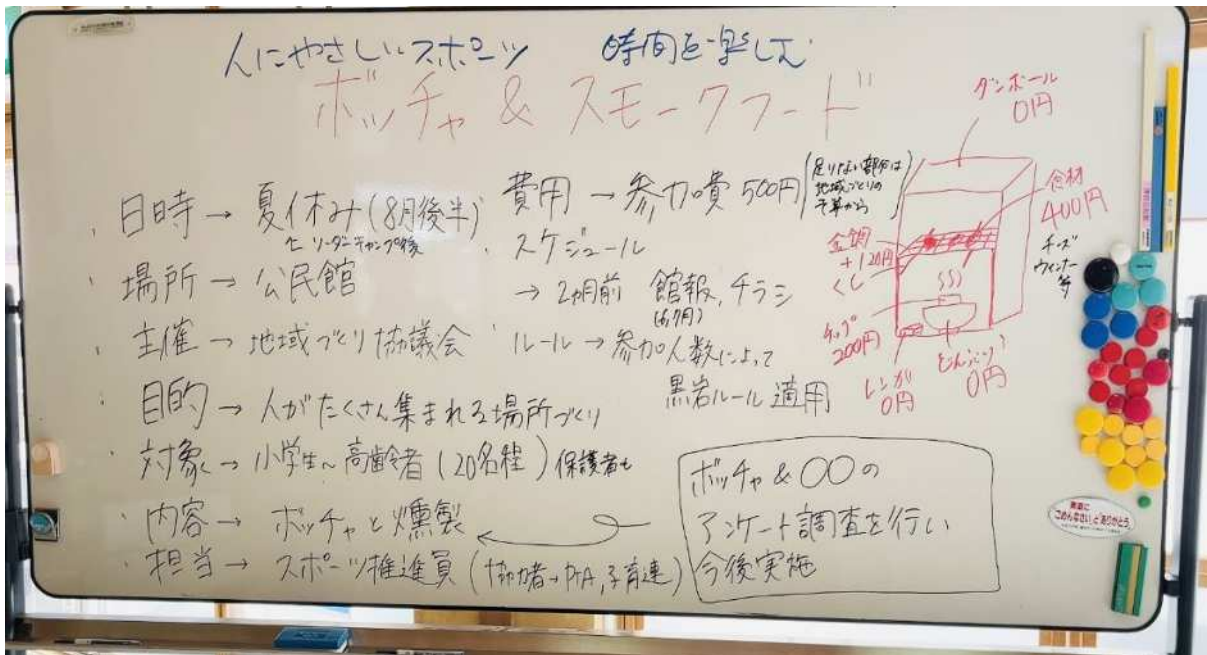 人にやさしいスポーツ 時間を楽しむ
ボッチャ & スモークフード
・日時 → 夏休み(8月後半)
リーダーキャンプ後
・場所 → 公民館
・主催 → 地域づくり協議会
・目的 → 人がたくさん集まれる場所づくり
・対象 → 小学生〜高齢者(20名程)保護者も
・内容 → ボッチャと燻製
・担当 → スポーツ推進員(協力者→PTA,子育連)
費用 → 参加費 500円(足りない部分は
地域づくりの
予算から)
・スケジュール
→ 2ヵ月前 館報,チラシ
(6,7月)
・ルール → 参加人数によって
黒岩ルール適用
ボッチャ & 〇〇の
アンケート調査を行い
今後実施
ダンボール
0円
食材
400円
チーズ
ウィンナー
等
金網
+120円
くし
チップ
200円
レンガ
0円
どんぶり
0円
素直に
「ごめんなさい」と「ありがとう」